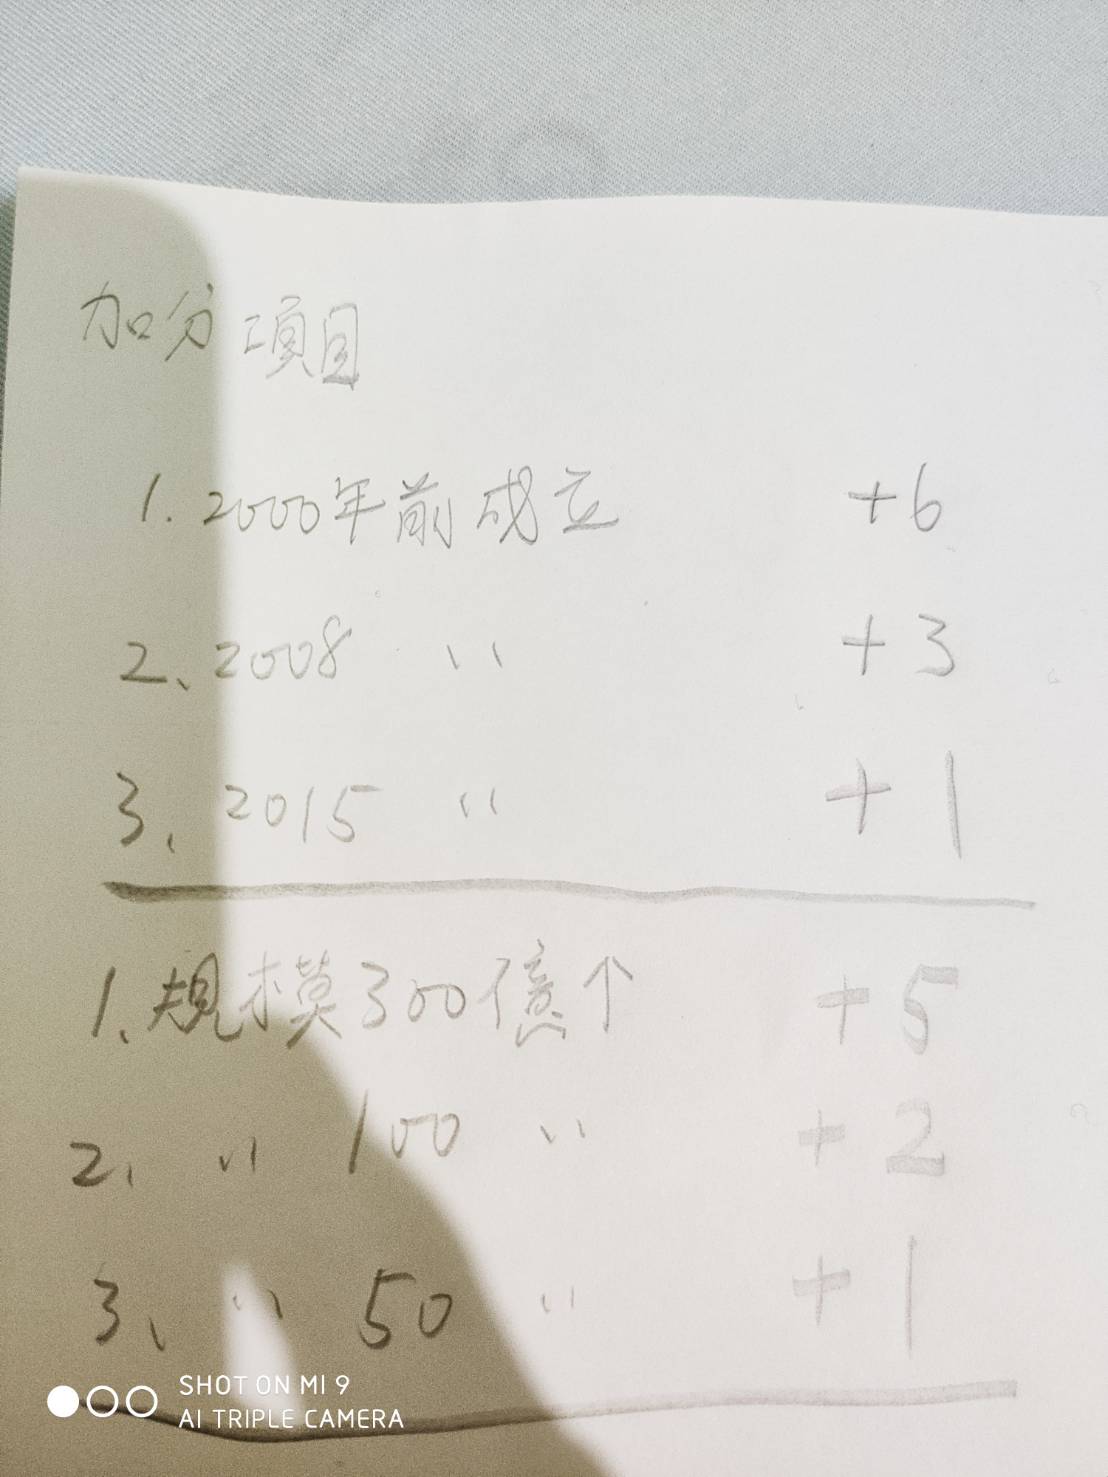 加分項目
1. 2000年前成立 +6
2、2008 〃 +3
3、2015 〃 +1
1、規模300億个 +5
2、〃 100 〃 +2
3、〃 50 〃 +1
SHOT ON MI 9
AI TRIPLE CAMERA